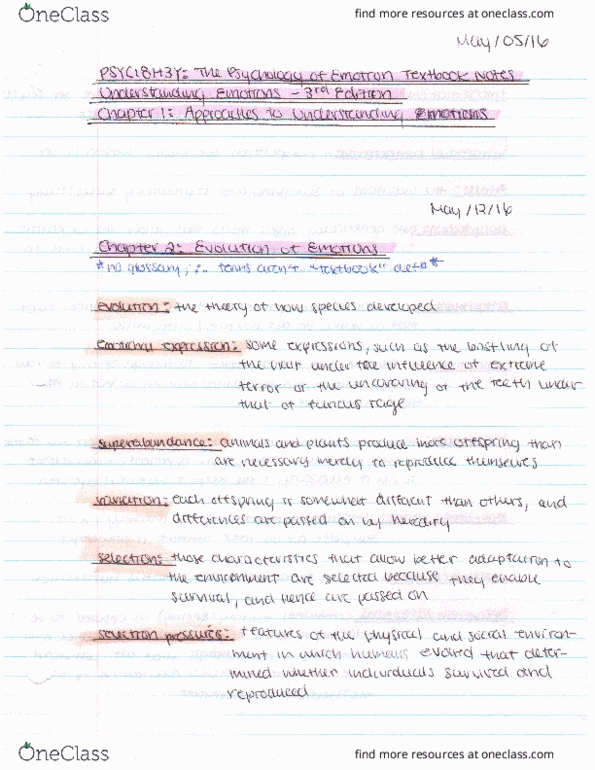 OneClass
find more resources at oneclass.com
May/05/16
PSYC18H3Y: The Psychology of Emotion Textbook Notes
Understanding Emotions - 3rd Edition
Chapter 1: Approaches to Understanding Emotions
May/12/16
Chapter 2: Evolution of Emotions
*no glossary, ∴ terms aren't "textbook" defs*
evolution: the theory of how species developed
emotional expression: some expressions, such as the bristling of
the hair under the influence of extreme
terror or the uncovering of the teeth under
that of furious rage
superabundance: animals and plants produce more offspring than
are necessary merely to reproduce themselves
variation: each offspring is somewhat different than others, and
differences are passed on by heredity
selection: those characteristics that allow better adaptation to
the environment are selected because they enable
survival, and hence are passed on
selection pressures: features of the physical and social environ-
ment in which humans evolved that deter-
mined whether individuals survived and
reproduced
OneClass
find more resources at oneclass.com